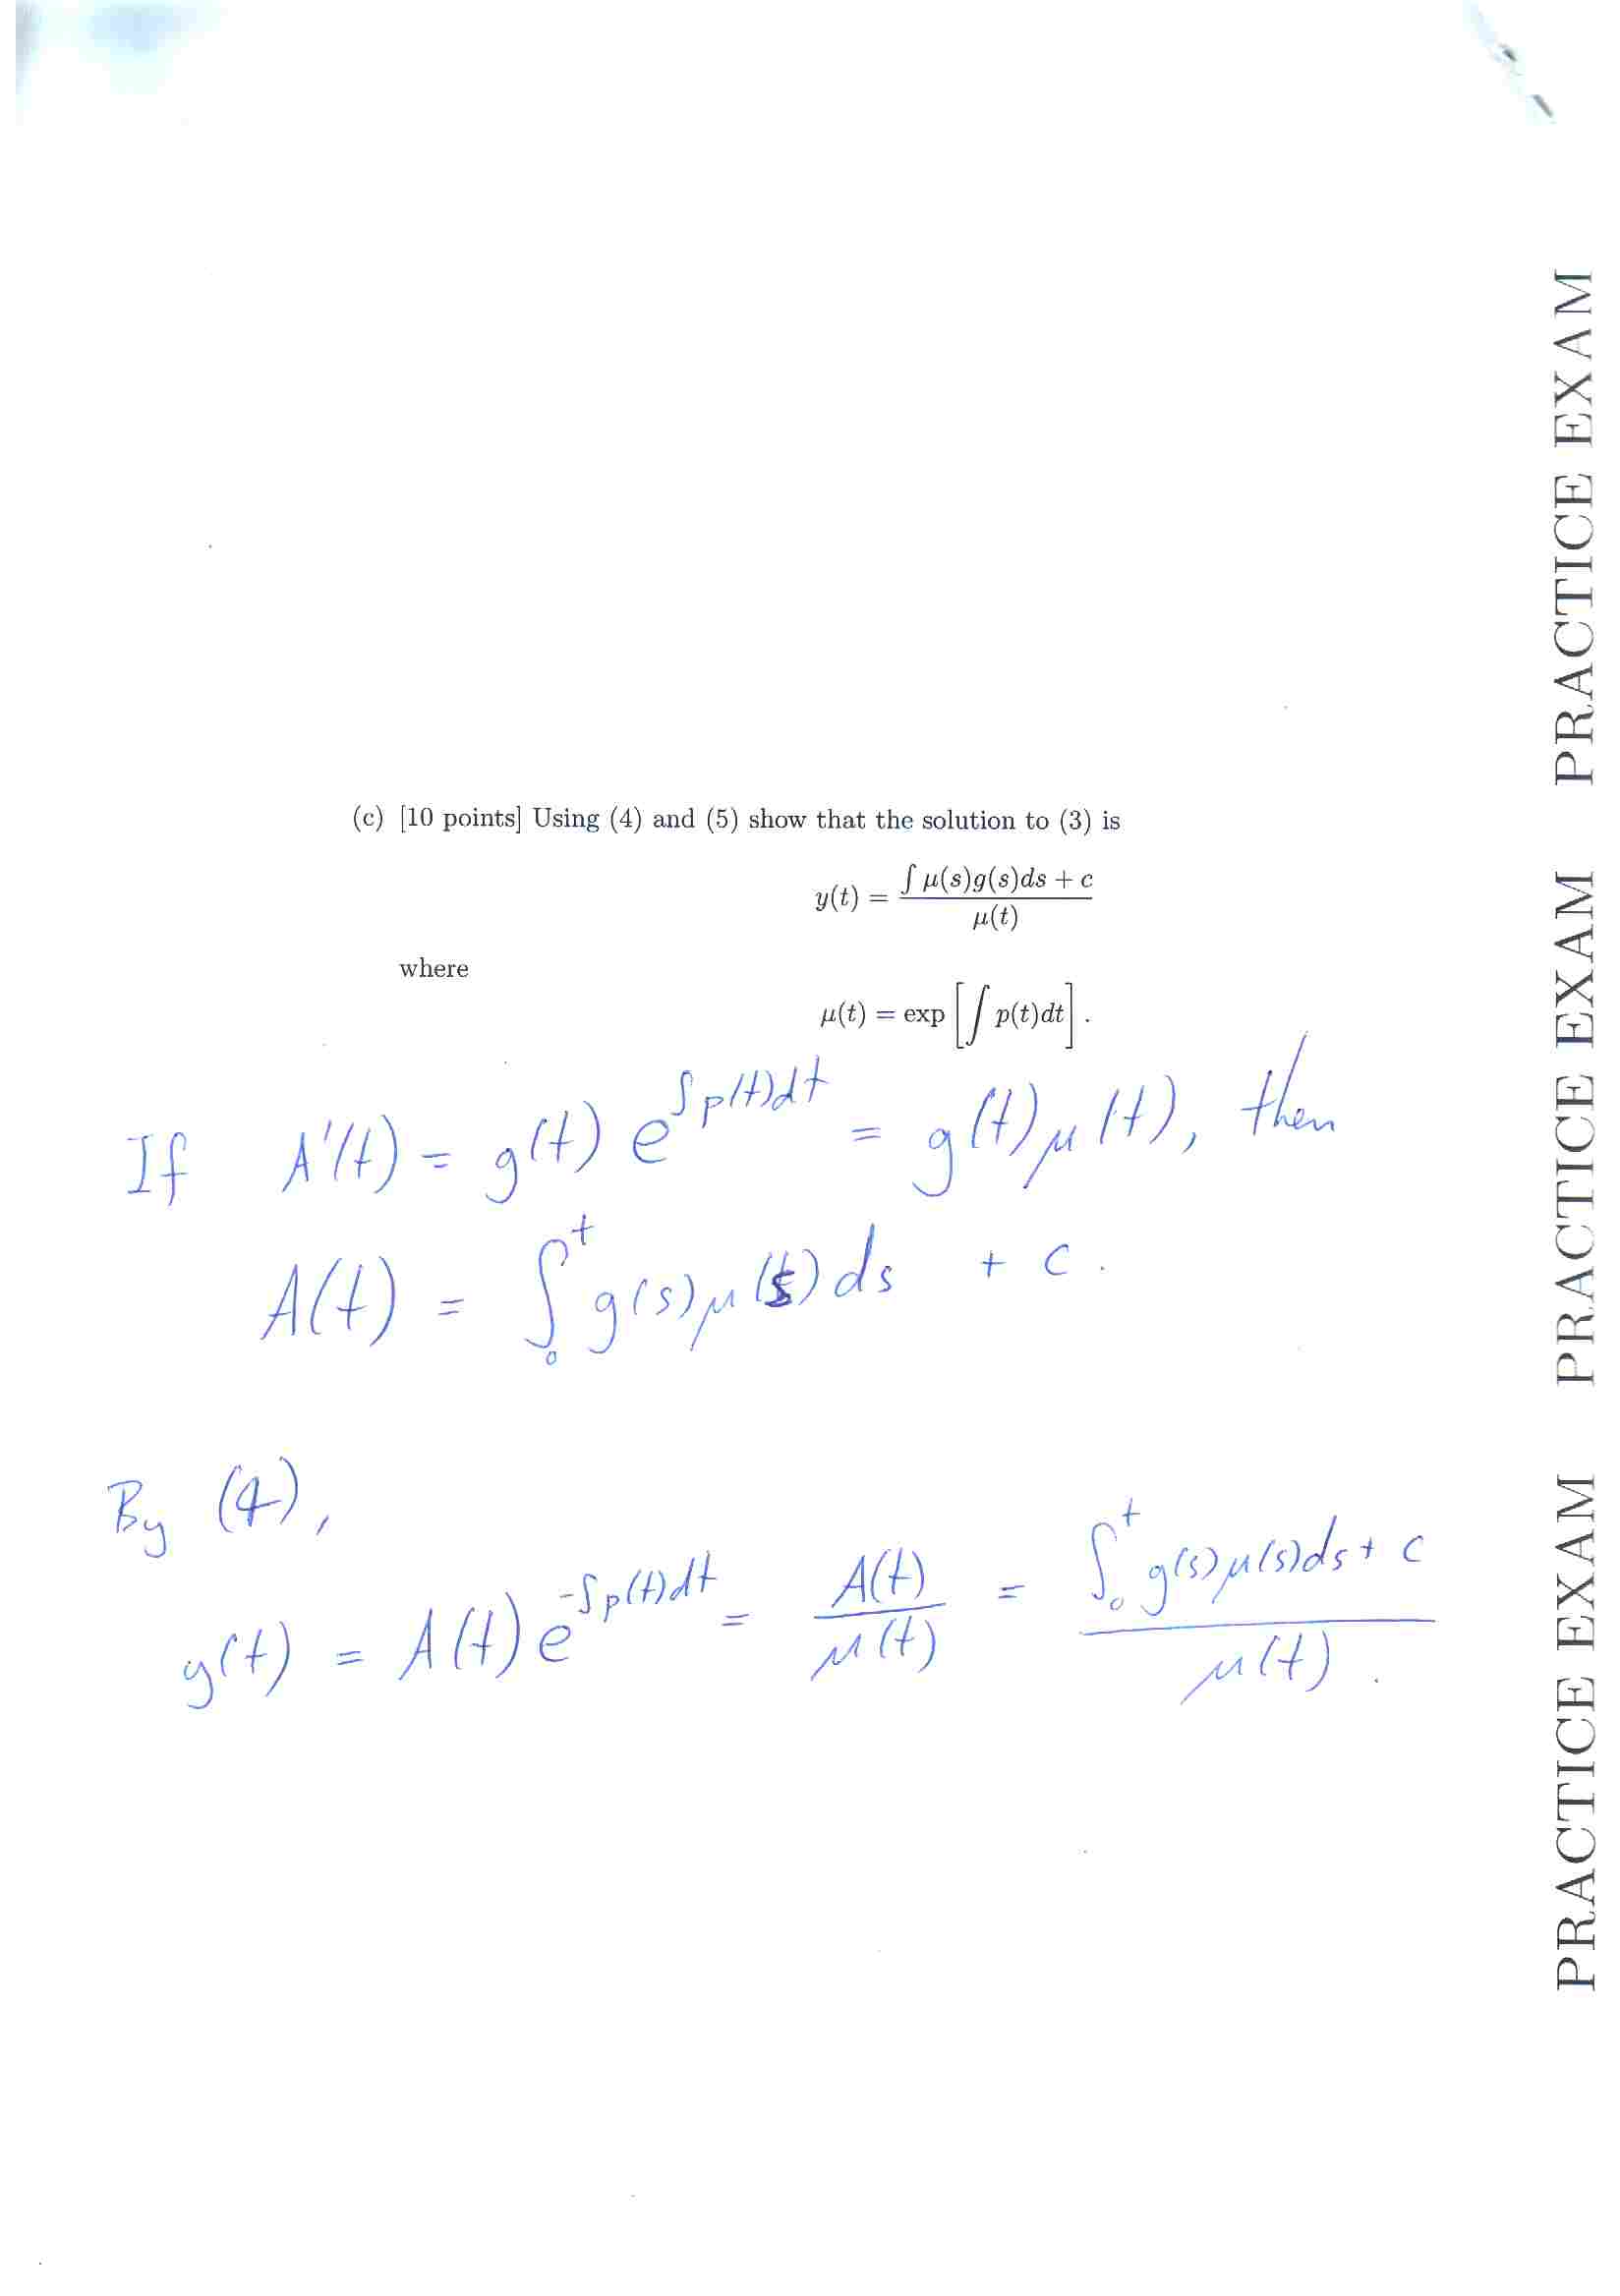 (c) [10 points] Using (4) and (5) show that the solution to (3) is
y(t) = ∫ μ(s)g(s)ds + c / μ(t)
where
μ(t) = exp [∫ p(t)dt] .
If A'(t) = g(t) e^{∫p(t)dt} = g(t)μ(t), then
A(t) = ∫_0^t g(s)μ(s)ds + c.
By (4),
y(t) = A(t)e^{-∫p(t)dt} = A(t)/μ(t) = ∫_0^t g(s)μ(s)ds + c / μ(t).
PRACTICE EXAM PRACTICE EXAM PRACTICE EXAM